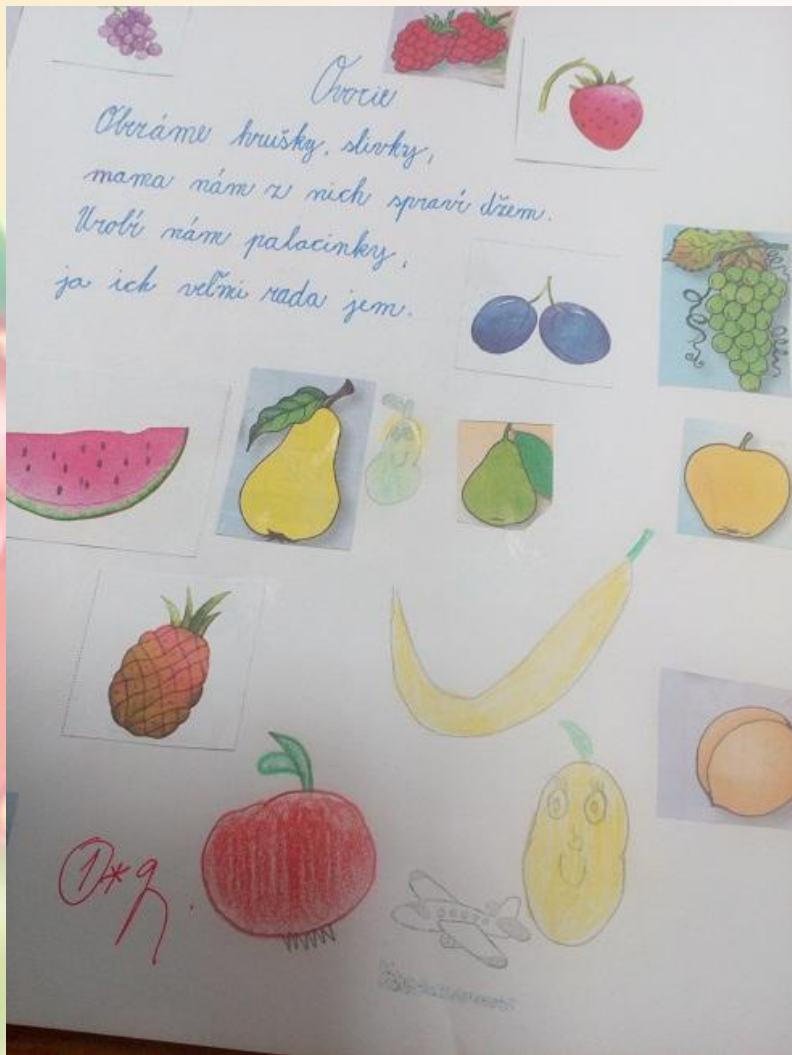 Ovocie
Obráme hrušky, slivky,
mama nám z nich spraví džem.
Urobí nám palacinky,
ja ich veľmi rada jem.
1*